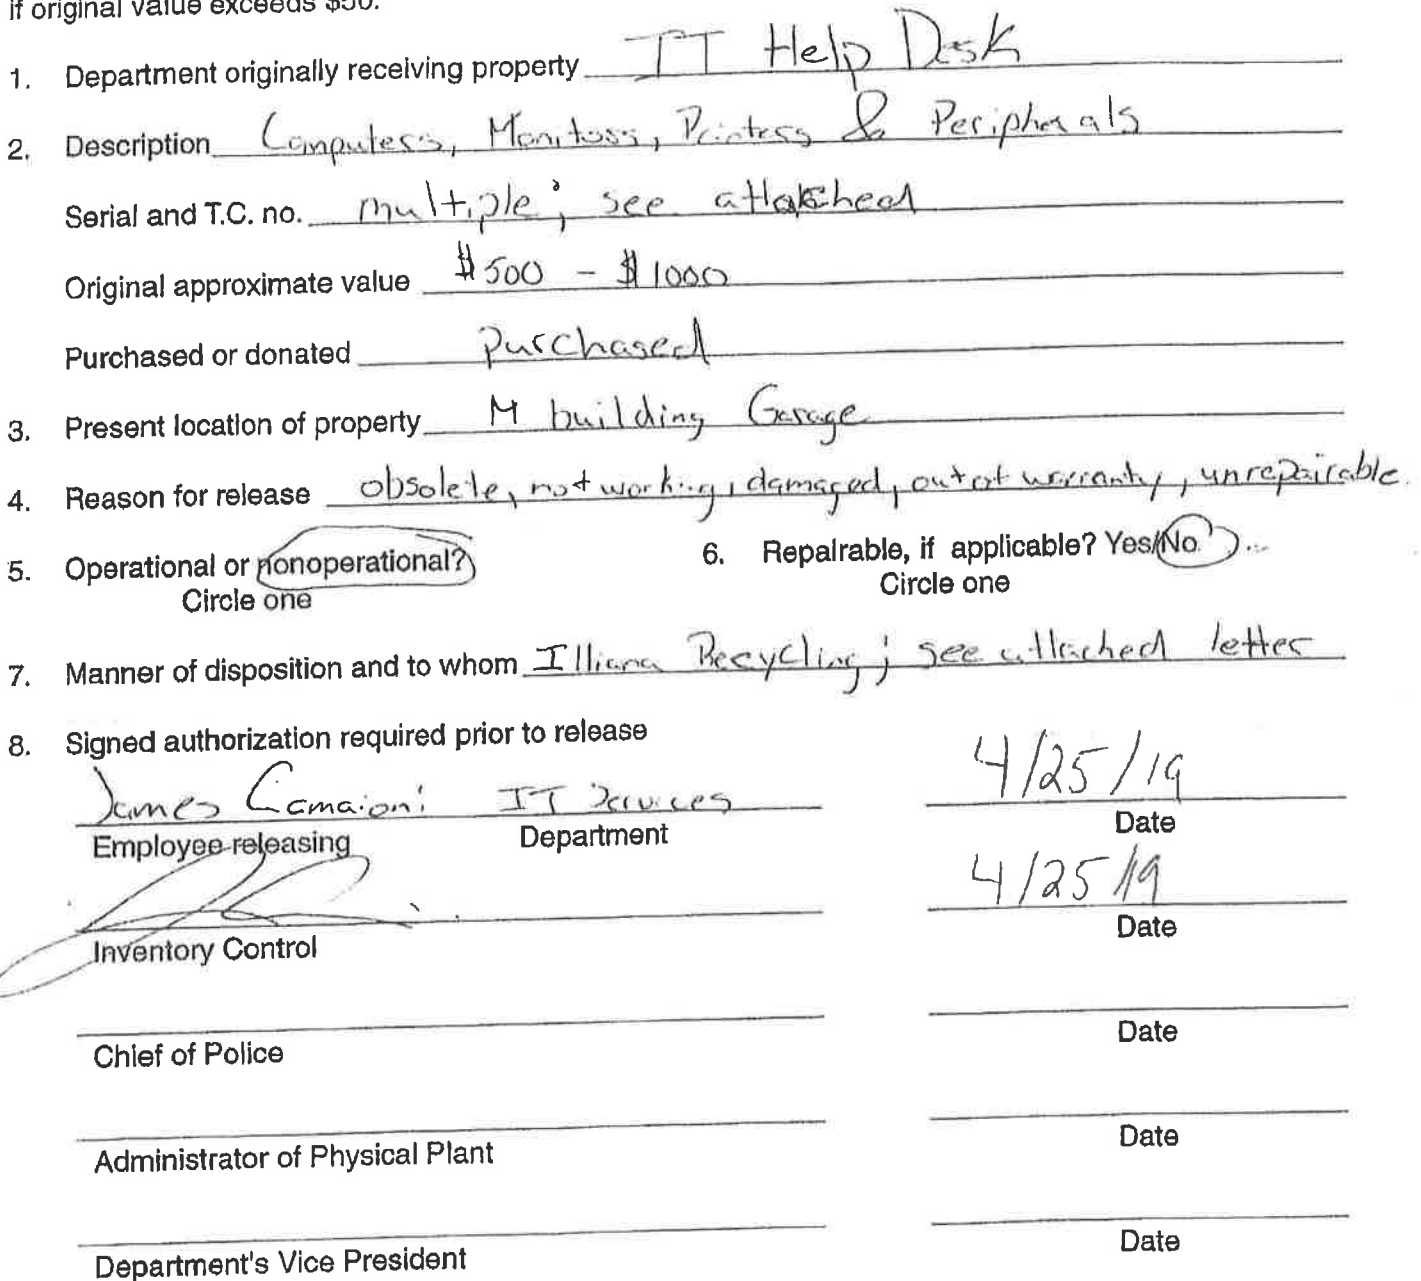 if original value exceeds $50.
1. Department originally receiving property IT Help Desk
2. Description Computers, Monitors, Printers & Peripherals
Serial and T.C. no. multiple; see attatched
Original approximate value $500 - $1000
Purchased or donated purchased
3. Present location of property M building Garage
4. Reason for release obsolete, not working, damaged, out of warranty, unrepairable.
5. Operational or nonoperational? 6. Repairable, if applicable? Yes/No
Circle one Circle one
7. Manner of disposition and to whom Illiana Recycling; see attached letter
8. Signed authorization required prior to release
James Camaioni IT Services 4/25/19
Employee releasing Department Date
4/25/19
Inventory Control Date
Chief of Police Date
Administrator of Physical Plant Date
Department's Vice President Date